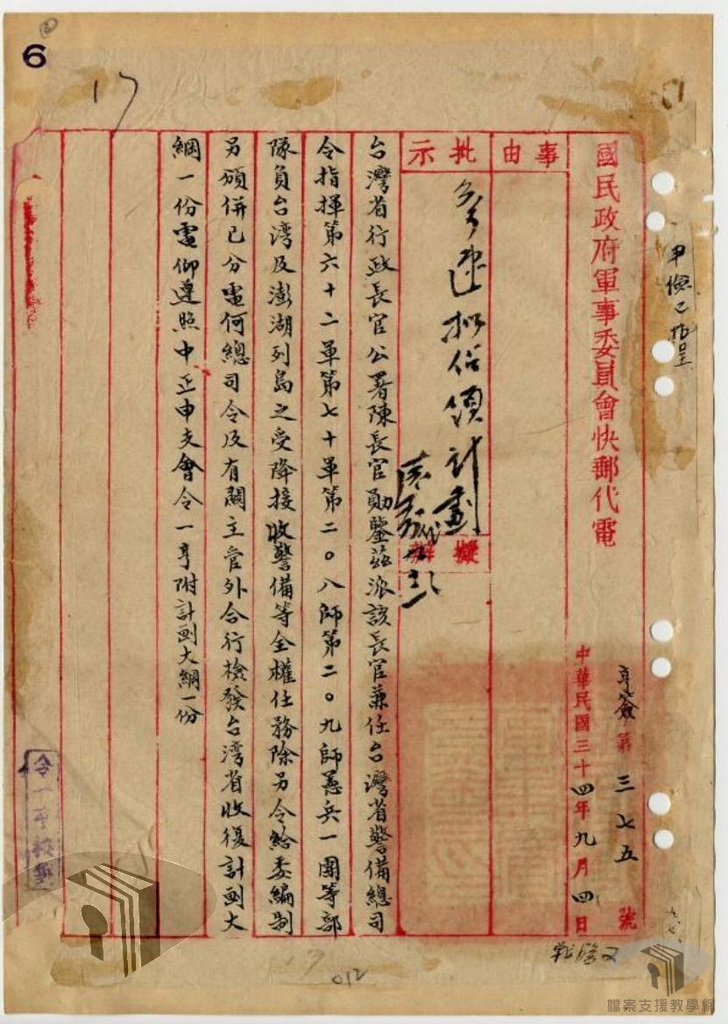 6
17
國民政府軍事委員會快郵代電
亨簽第三七五號
中華民國三十四年九月四日
事由
批示
擬辦
台灣省行政長官公署陳長官勛鑒茲派該長官兼任台灣省警備總司
令指揮第六十二軍第七十軍第二〇八師第二〇九師憲兵一團等部
隊負台湾及澎湖列島之受降接收警備等全權任務除另令給委編制
另頒併已分電何總司令及有關主官外合行檢發台湾省收復計劃大
綱一份電仰遵照中正申支會令一亨附計劃大綱一份
令一亨校對
012
檔案支援教學網